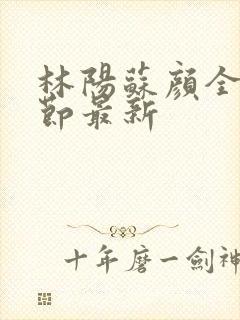 林陽蘇顔全
節最新
十年磨一劍神